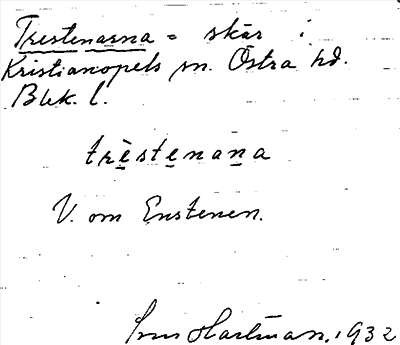 Trestenarna = skär i
Kristianopels sn. Östra hd.
Blek. l.
trèstenana
V. om Enstenen.
Hartman. 1932